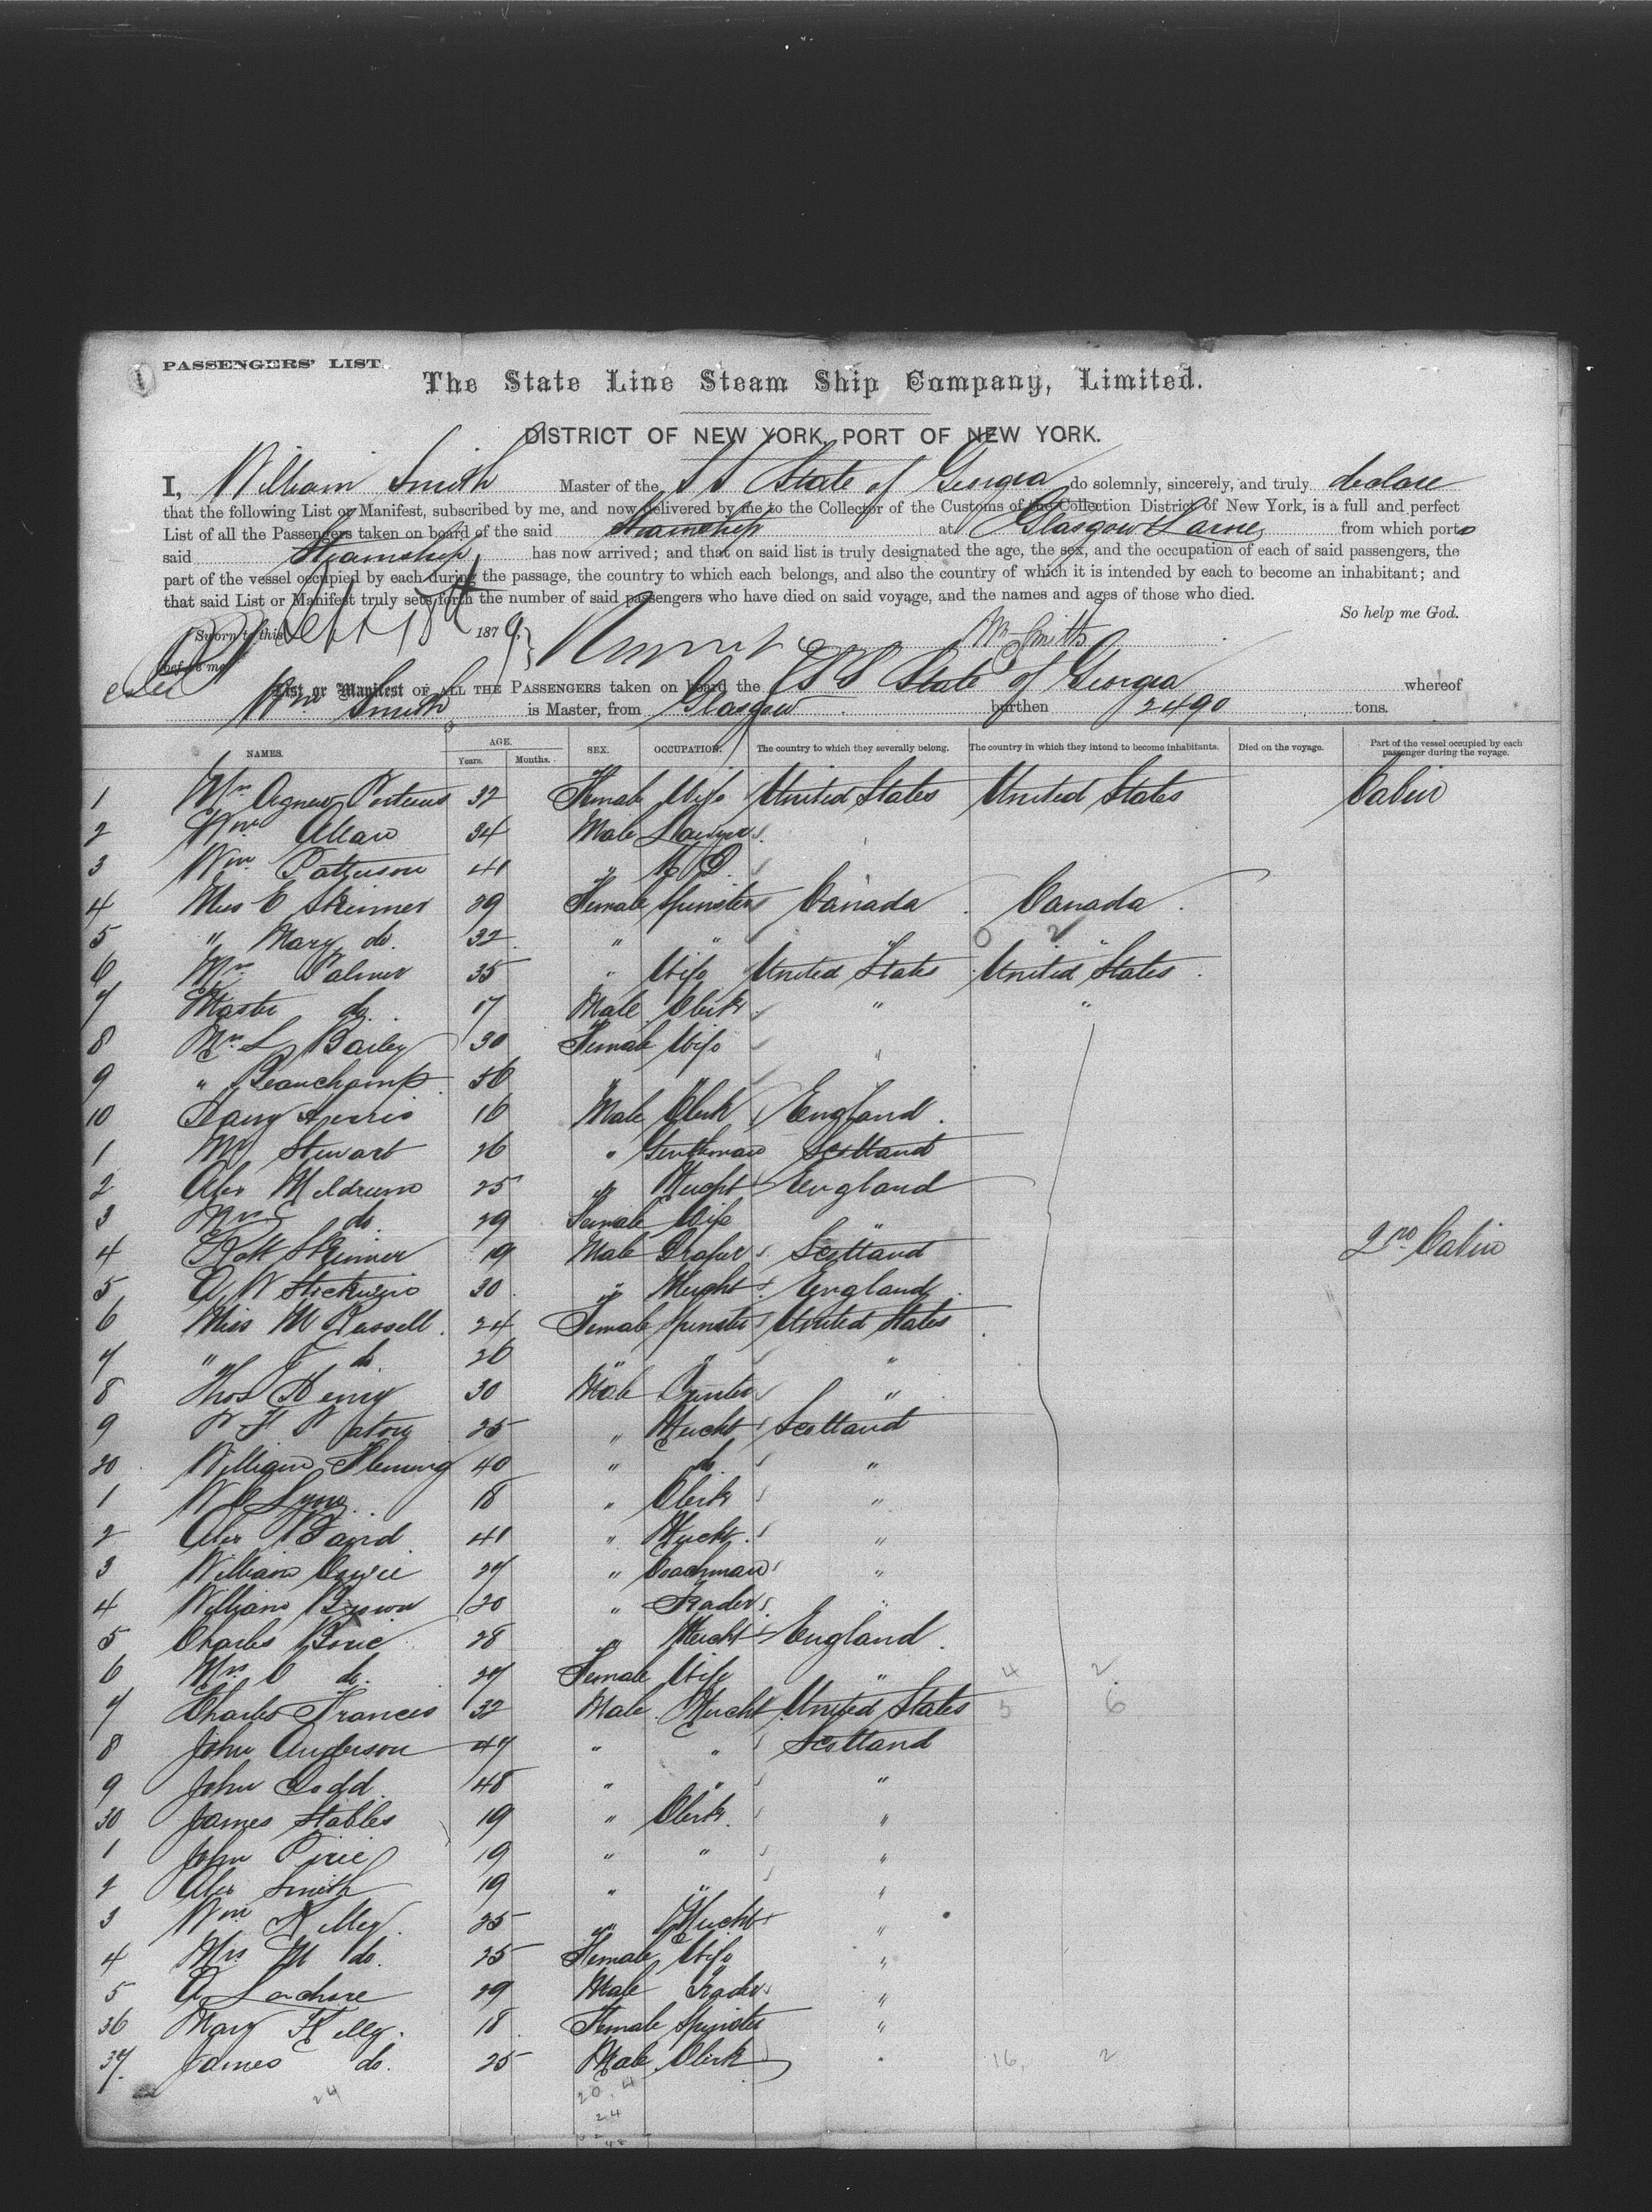 1 PASSENGERS' LIST.
The State Line Steam Ship Company, Limited.
DISTRICT OF NEW YORK, PORT OF NEW YORK.
I, William Smith Master of the SS State of Georgia do solemnly, sincerely, and truly declare
that the following List or Manifest, subscribed by me, and now delivered by me to the Collector of the Customs of the Collection District of New York, is a full and perfect
List of all the Passengers taken on board of the said Steamship at Glasgow & Larne from which ports
said Steamship has now arrived; and that on said list is truly designated the age, the sex, and the occupation of each of said passengers, the
part of the vessel occupied by each during the passage, the country to which each belongs, and also the country of which it is intended by each to become an inhabitant; and
that said List or Manifest truly sets forth the number of said passengers who have died on said voyage, and the names and ages of those who died.
So help me God.
Sworn to this Sept 18th 1879. Wm Smith
before me
List or Manifest OF ALL THE PASSENGERS taken on board the SS State of Georgia whereof
Wm Smith is Master, from Glasgow burthen 2490 tons.
NAMES. AGE. Years. Months. SEX. OCCUPATION. The country to which they severally belong. The country in which they intend to become inhabitants. Died on the voyage. Part of the vessel occupied by each passenger during the voyage.
1 Mrs Agnew Porteus 32 Female Wife United States United States Cabin
2 Wm Allan 34 Male Lawyer
3 Wm Patterson 41 " M D.
4 Miss E Skinner 29 Female Spinster Canada Canada
5 " Mary do. 32 " " " "
6 Mrs Palmer 35 " Wife United States United States
7 Master do. 17 Male Clerk " "
8 Mrs L Bailey 30 Female Wife "
9 " Beauchamp 56 " "
10 Harris 16 Male Clerk England
1 M Stewart 26 " Gentleman Scotland
2 Alex Meldrum 25 " Mercht England
3 Mrs do. 29 Female Wife "
4 Robt Skinner 19 Male Draper Scotland 2nd Cabin
5 A W 30 " Mercht England
6 Miss M Russell 24 Female Spinster United States
7 " do. 26 " " "
8 Thos Henry 30 Male "
9 Paton 25 " Mercht Scotland
20 William Fleming 40 " do. "
1 W C Lyon 18 " Clerk "
2 Alex Baird 41 " Mercht "
3 William Cowie 27 " Coachman "
4 William Brown 20 " Trader "
5 Charles 28 " Mercht England
6 Mrs C do. 27 Female Wife " 4 2
7 Charles Francis 32 Male Mercht United States 5 6
8 John Anderson 47 " " Scotland
9 John Dodd 48 " " "
30 James Stables 19 " Clerk "
1 John Pirie 19 " " "
2 Alex Smith 19 " " "
3 Wm Kelley 25 " Mercht "
4 Mrs M do. 25 Female Wife "
5 A 29 Male Trader "
36 Mary Kelley 18 Female Spinster "
37. James do. 25 Male Clerk " 16 2
24 20 4
24